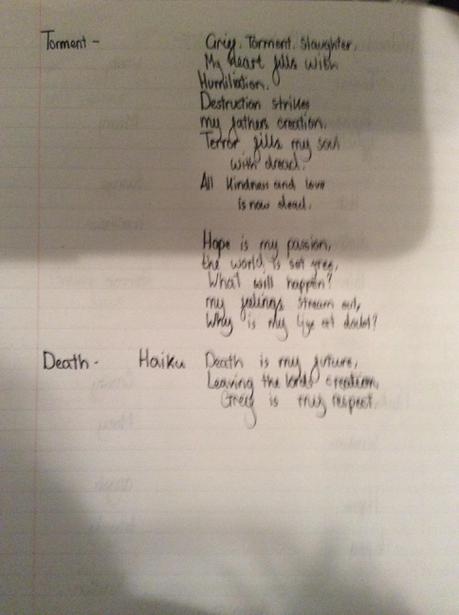 Torment - Grief. Torment. Slaughter.
My heart fills with
Humiliation.
Destruction strikes
my fathers creation.
Terror fills my soul
with dread.
All kindness and love
is now dead.
Hope is my passion,
the world is set free,
What will happen?
my feelings stream out,
Why is my life at doubt?
Death - Haiku Death is my future,
Leaving the lords creation,
Grief is my respect.